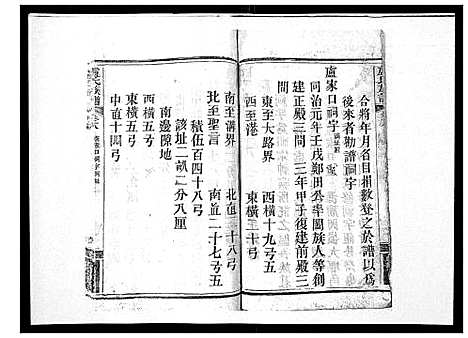 合將年月省目捐數登之於譜以爲
後來者勸譜祠宇
盧家口祠宇
同治元年壬戌鄭田公率闔族人等創
建正殿三間 三年甲子復建前殿三
間
東至大路界 西橫十九弓五
西至港 東橫三十弓
南至溝界 北直二十八弓
北至聖言 南直二十七弓五
積伍百四十八弓
該址二畝二分八厘
南邊隙地
西橫五弓
東橫五弓
中直十四弓
盧氏族譜 卷